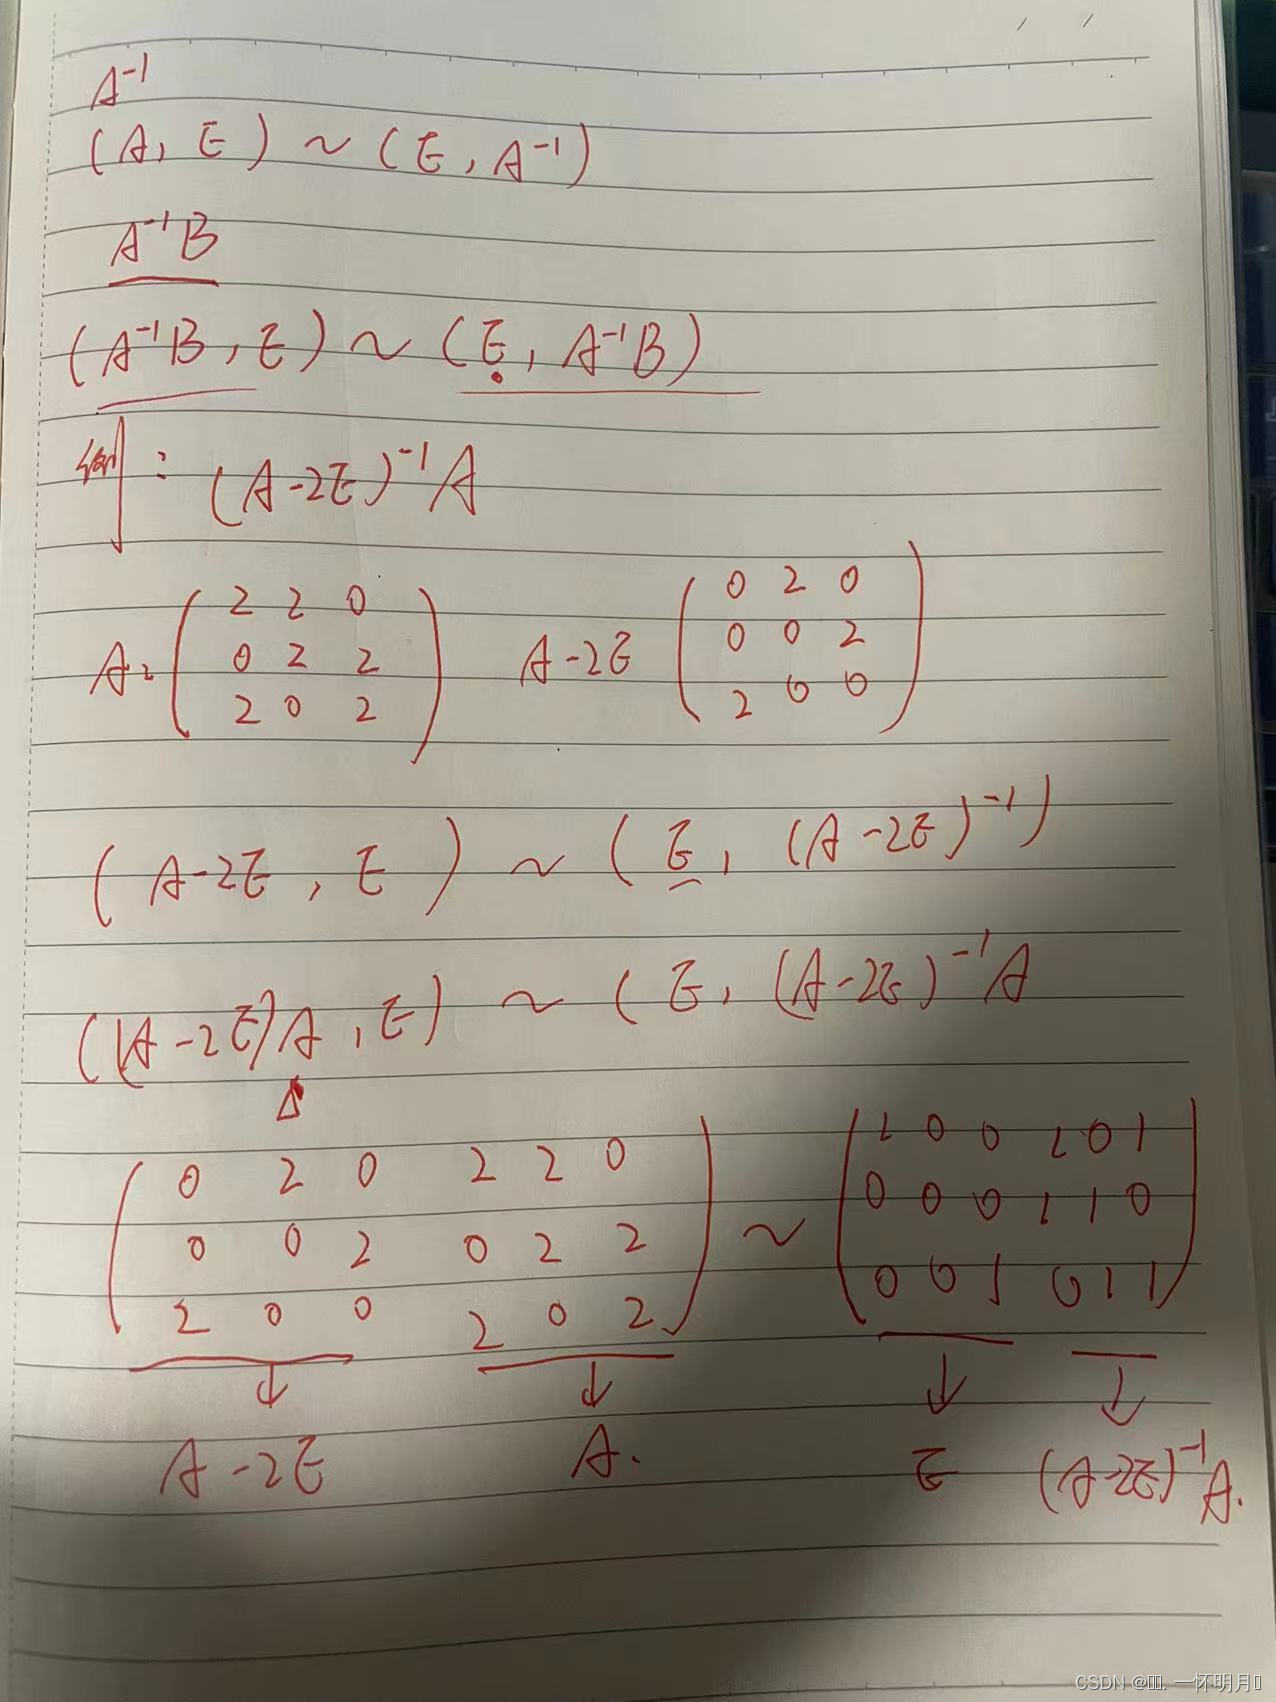 A⁻¹
(A, E) ~ (E, A⁻¹)
A⁻¹B
(A⁻¹B, E) ~ (E, A⁻¹B)
例: (A-2E)⁻¹A
A= (2 2 0 A-2E (0 2 0
0 2 2 0 0 2
2 0 2) 2 0 0)
(A-2E, E) ~ (E, (A-2E)⁻¹)
((A-2E)A, E) ~ (E, (A-2E)⁻¹A
(0 2 0 2 2 0 ~ (1 0 0 1 0 1
0 0 2 0 2 2 0 0 0 1 1 0
2 0 0 2 0 2) 0 0 1 0 1 1)
↓ ↓ ↓ ↓
A-2E A. E (A-2E)⁻¹A.
CSDN @□□. 一怀明月□